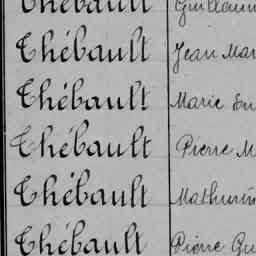 Thébault Guillaum
Thébault Jean Mar
Thébault Marie
Thébault Pierre M
Thébault Mathurin
Thébault Pierre Gu